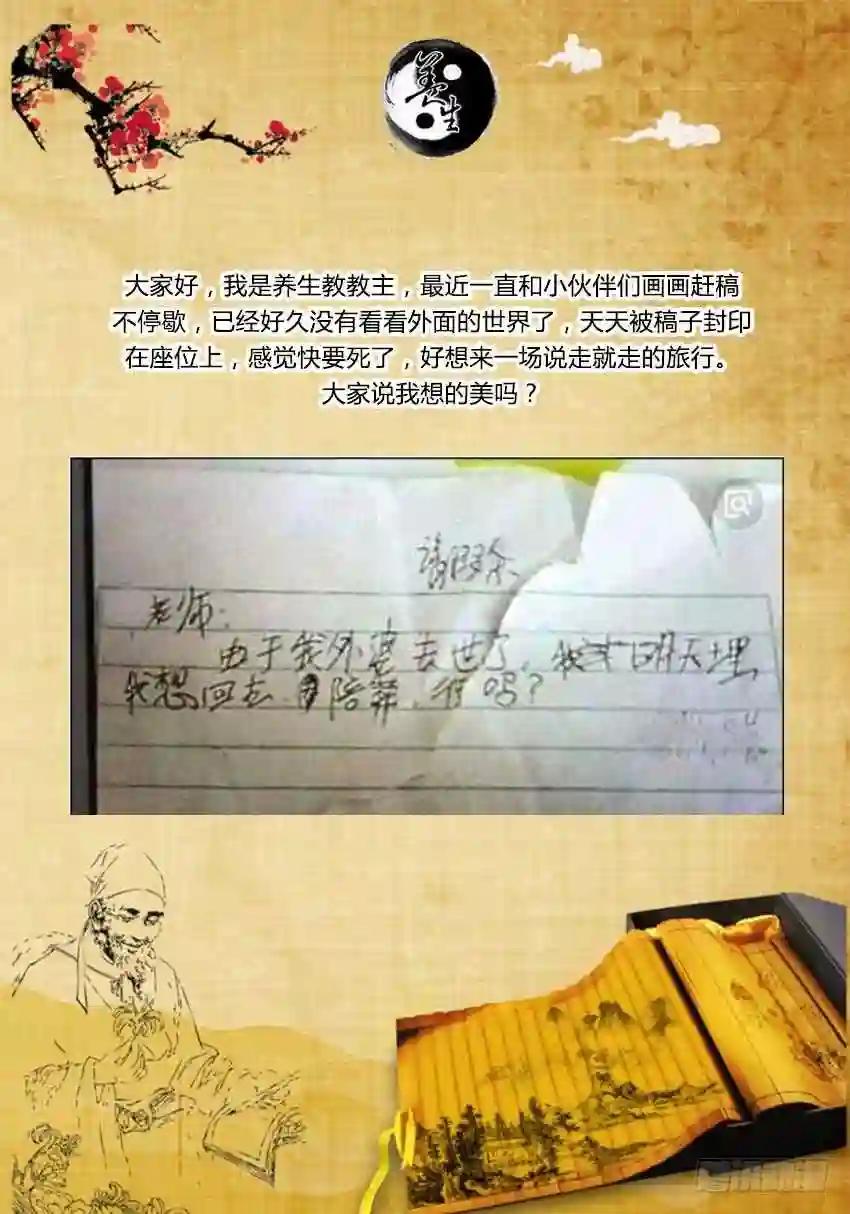 养生
大家好，我是养生教教主，最近一直和小伙伴们画画赶稿
不停歇，已经好久没有看看外面的世界了，天天被稿子封印
在座位上，感觉快要死了，好想来一场说走就走的旅行。
大家说我想的美吗？
请假条
老师：
由于我外婆去世了，我家明天埋
我想回去陪葬，行吗？